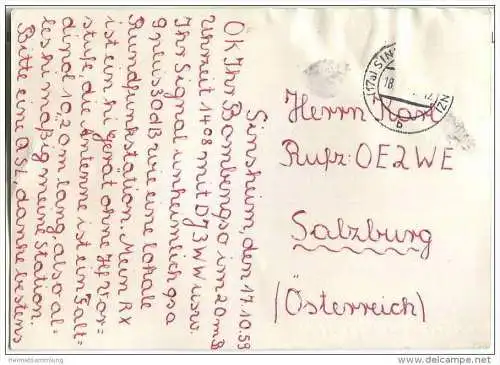 Sinsheim, den 17.10.59
OK Ihr Bombenqso im 20 m
Uhrzeit 1408 mit DJ3WW usw.
Ihr Signal unheimlich qsa
9 plus 30 dB wie eine lokale
Rundfunkstation. Mein RX
ist ein hi gerät ohne Hf Vor-
stufe, die Antenne ist ein Falt-
dipol 10,20 m lang, also al-
les hi mäßig meine Station.
Bitte eine QSL, danke bestens
(17a) SIN
18.
b
Herrn Karl
Rufz: OE2WE
Salzburg
(Österreich)
heimatsammlung.at
picture offered on www.delcampe.net